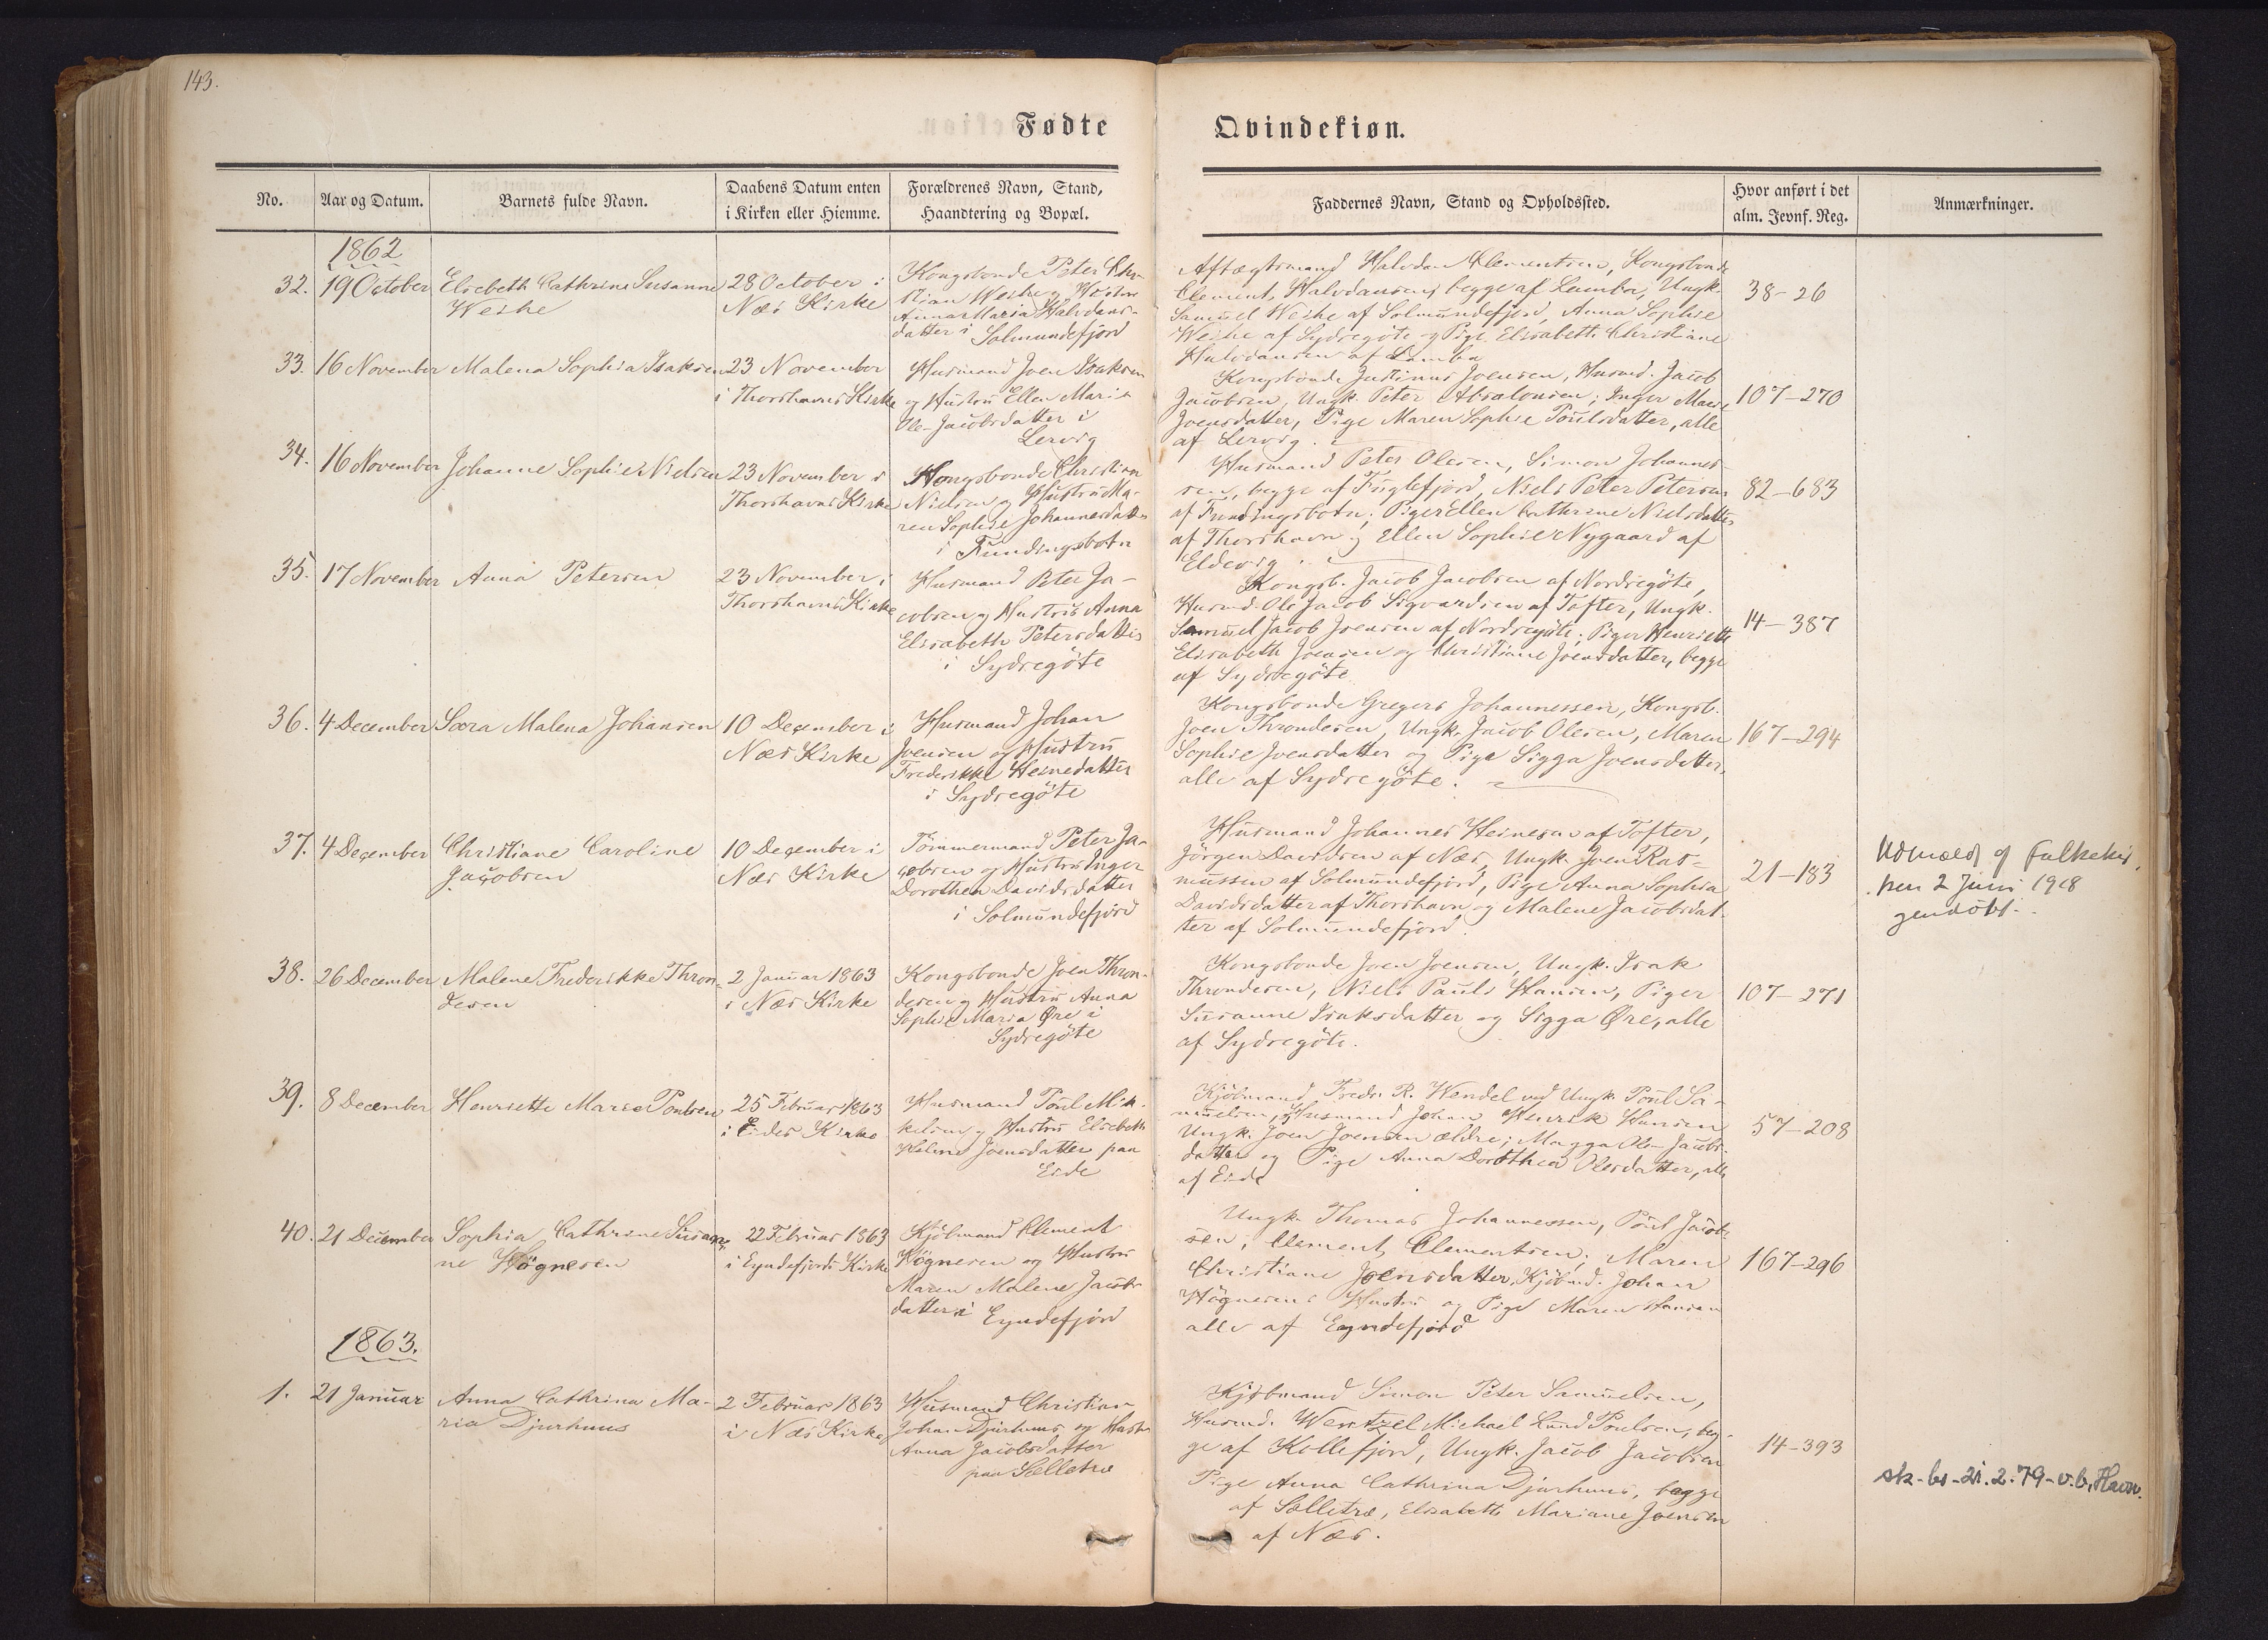 143.
Fødte
Qvindekiøn.
No.
Aar og Datum.
Barnets fulde Navn.
Daabens Datum enten
i Kirken eller Hiemme.
Forældrenes Navn, Stand,
Haandtering og Bopæl.
Faddernes Navn, Stand og Opholdssted.
Hvor anført i det
alm. Jevnf. Reg.
Anmærkninger.
1862
32.
19 October
Elsebeth Cathrine Susanne
Weihe
28 October i
Næs Kirke
Kongsbonde Peter Chri-
stian Weihe og Hustru
Anna Maria Halvdans-
datter i Solmundefjord
Aftægtsmand Halvdan Clementsen, Kongsbonde
Clement Halvdansen, begge af Lamba, Ungk.
Samuel Weihe af Solmundefjord, Anna Sophie
Weihe af Sydregöte og Pige Elisabeth Christiane
Halvdansen af Lamba
38-26
33.
16 November
Malena Sophia Isaksen
23 November
i Thorshavns Kirke
Husmand Joen Isaksen
og Hustru Ellen Maria
Ole-Jacobsdatter i
Lervig
Kongsbonde Justinus Joensen, Husmd. Jacob
Jacobsen, Ungk. Peter Absalonsen; Inger Marie
Joensdatter, Pige Maren Sophie Poulsdatter, alle
af Lervig.
107-270
34.
16 November
Johanne Sophie Nielsen
23 November i
Thorshavns Kirke
Kongsbonde Christian
Nielsen og Hustru Ma-
ren Sophie Johannesdatter
i Fundingsbotn
Husmand Peter Olesen, Simon Johannes-
sen, begge af Fuglefjord, Niels Peter Petersen
af Fundingsbotn; Piger Ellen Cathrine Nielsdatter
af Thorshavn og Ellen Sophie Nygaard af
Eldevig.
82-683
35.
17 November
Anna Petersen
23 November i
Thorshavns Kirke
Husmand Peter Ja-
cobsen og Hustru Anna
Elisabeth Petersdatter
i Sydregöte
Kongsb. Jacob Jacobsen af Nordregöte,
Husmd. Ole Jacob Sigvardsen af Tofter, Ungk.
Samuel Jacob Joensen af Nordregöte; Piger Henriette
Elisabeth Joensen og Christiane Joensdatter, begge
af Sydregöte
14-387
36.
4 December
Sara Malena Johansen
10 December i
Næs Kirke
Husmand Johan
Joensen og Hustru
Frederikke Heinesdatter
i Sydregöte
Kongsbonde Gregers Johannessen, Kongsb.
Joen Throndesen, Ungk. Jacob Olesen, Maren
Sophie Joensdatter og Pige Sigga Joensdatter,
alle af Sydregöte.
167-294
37.
4 December
Christiane Caroline
Jacobsen
10 December i
Næs Kirke
Tömmermand Peter Ja-
cobsen og Hustru Inger
Dorothea Davidsdatter
i Solmundefjord
Husmand Johannes Heinesen af Tofter,
Jörgen Davidsen af Næs, Ungk. Joen Ras-
mussen af Solmundefjord, Pige Anna Sophia
Davidsdatter af Thorshavn og Malene Jacobsdat-
ter af Solmundefjord.
21-183
Udmeldt af Folkekir.
den 2 Juni 1918
gendöbt.
38.
26 December
Malene Frederikke Thron-
desen
2 Januar 1863
i Næs Kirke
Kongsbonde Joen Thron-
desen og Hustru Anna
Sophie Maria Øre i
Sydregöte
Kongsbonde Joen Joensen, Ungk. Isak
Throndesen, Niels Pauli Hansen, Piger
Susanne Isaksdatter og Sigga Øre, alle
af Sydregöte.
107-271
39.
8 December
Henriette Marie Poulsen
25 Februar 1863
i Eides Kirke
Husmand Poul Mik-
kelsen og Hustru Elsebeth
Malene Joensdatter paa
Eide
Kjöbmand Fredr. R. Wendel ved Ungk. Poul Sa-
muelsen, Husmand Johan Henrik Hansen
Ungk. Joen Joensen ældre; Magga Ole-Jacobs-
datter og Pige Anna Dorothea Olesdatter, alle
af Eide
57-208
40.
21 December
Sophia Cathrine Susan-
ne Högnesen
22 Februar 1863
i Eyndefjords Kirke
Kjöbmand Clement
Högnesen og Hustru
Maren Malene Jacobs-
datter i Eyndefjord
Ungk. Thomas Johannessen, Poul Jacob-
sen, Clement Clementsen; Maren
Christiane Joensdatter, Kjöbmd. Johan
Högnesens Hustru og Pige Maren Hansen
alle af Eyndefjord
167-296
1863.
1.
21 Januar
Anna Cathrina Ma-
ria Djurhuus
2 Februar 1863
i Næs Kirke
Husmand Christian
Johan Djurhuus og Hustru
Anna Jacobsdatter
paa Sælletræ
Kjöbmand Simon Peter Samuelsen,
Husmd. Wentzel Michael Lund Poulsen, beg-
ge af Kollefjord, Ungk. Jacob Jacobsen
Pige Anna Cathrina Djurhuus, begge
af Sælletræ, Elisabeth Mariane Joensen
af Næs.
14-393
sk-bs-21.2.79-v.b. Havn.